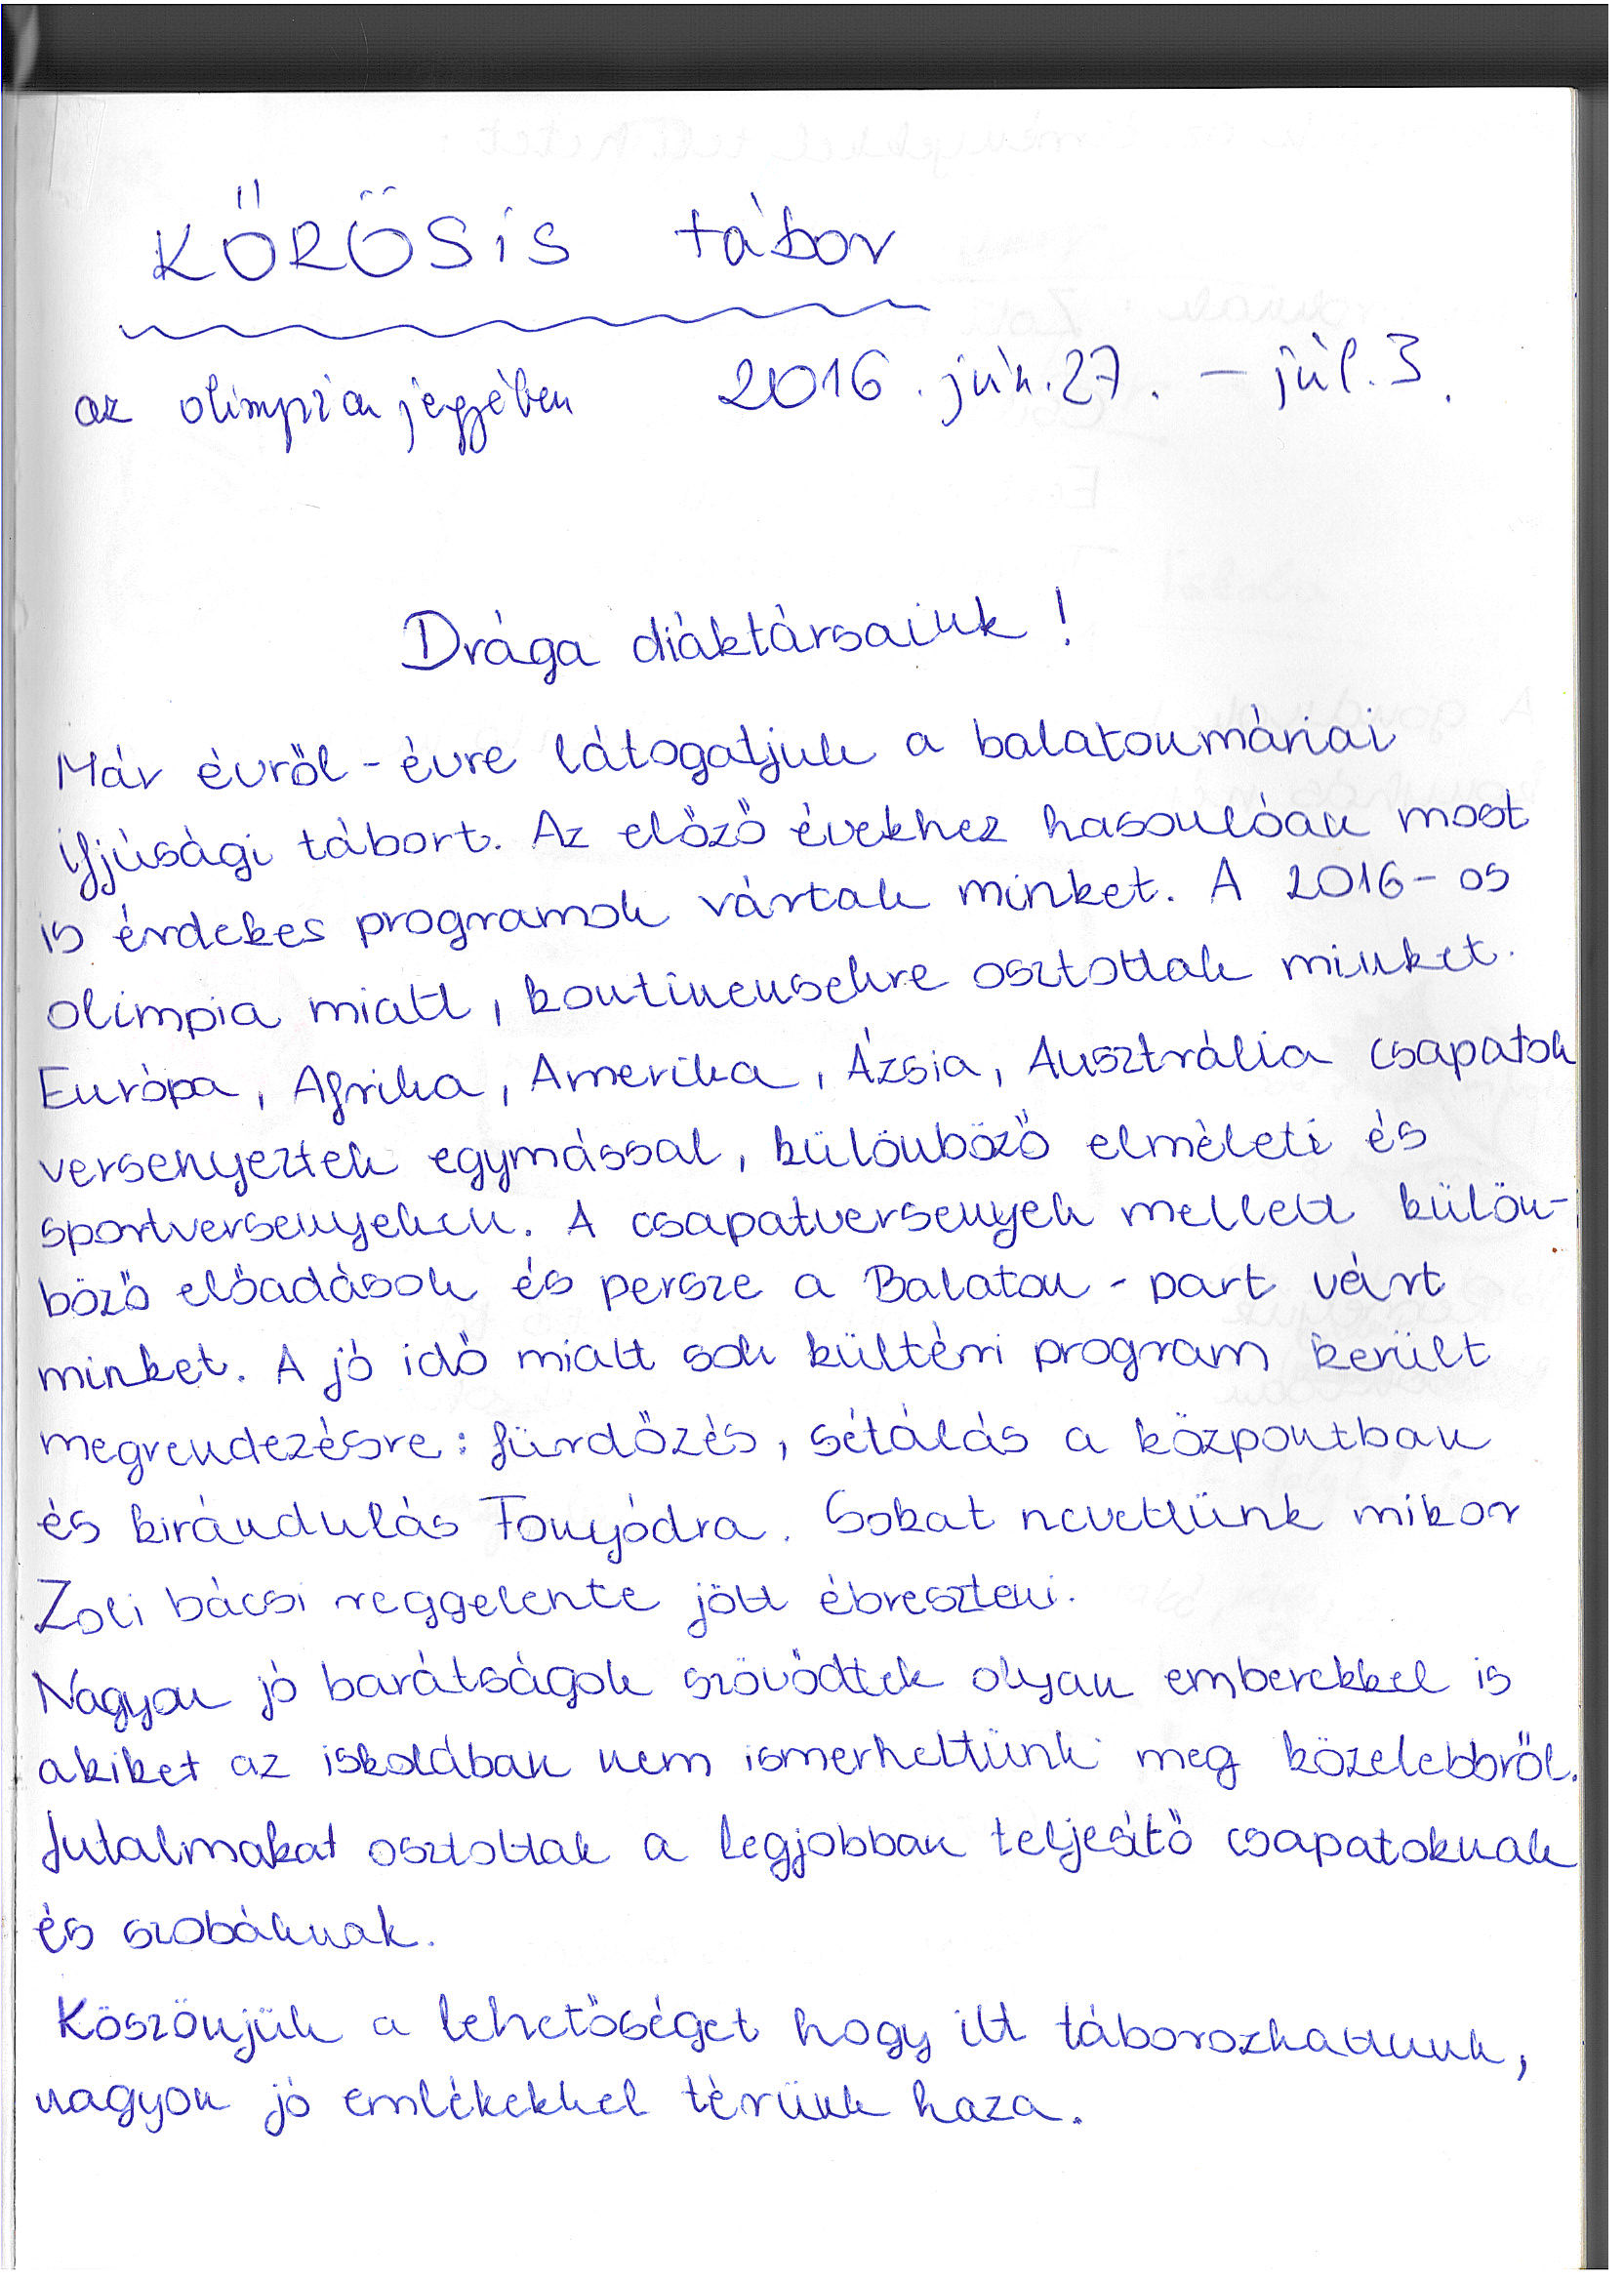 KŐRÖSis tábor
az olimpia jegyében 2016. jún. 27. - júl. 3.
Drága diáktársaink!
Már évről-évre látogatjuk a balatonmáriai
ifjúsági tábort. Az előző évekhez hasonlóan most
is érdekes programok vártak minket. A 2016-os
olimpia miatt, kontinensekre osztottak minket.
Európa, Afrika, Amerika, Ázsia, Ausztrália csapatok
versenyeztek egymással, különböző elméleti és
sportversenyeken. A csapatversenyek mellett külön-
böző előadások és persze a Balaton-part várt
minket. A jó idő miatt sok kültéri program került
megrendezésre: fürdőzés, sétálás a központban
és kirándulás Fonyódra. Sokat nevettünk mikor
Zoli bácsi reggelente jött ébreszteni.
Nagyon jó barátságok szövődtek olyan emberekkel is
akiket az iskolában nem ismerhettünk meg közelebbről.
Jutalmakat osztottak a legjobban teljesítő csapatoknak
és szobáknak.
Köszönjük a lehetőséget hogy itt táborozhattunk,
nagyon jó emlékekkel térünk haza.